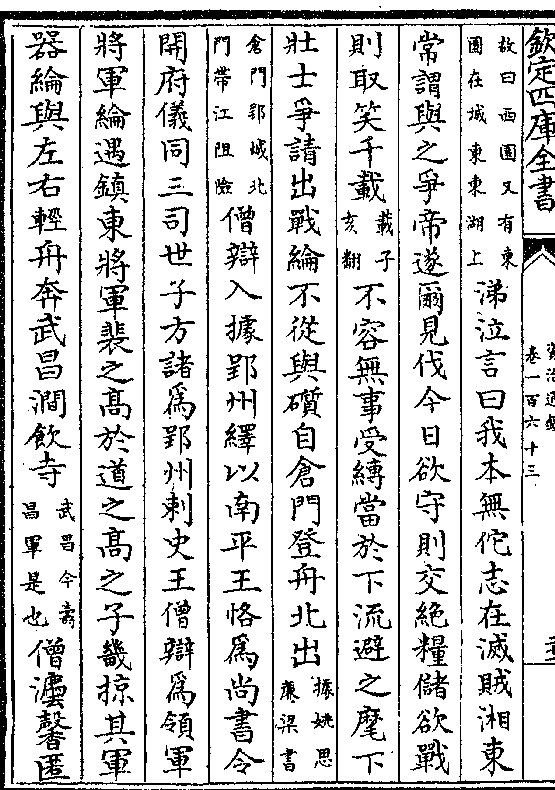 欽定四庫全書
資治通鑑
卷一百六十三
故曰西園又有東園在城東東湖上涕泣言曰我本無佗志在滅賊湘東
常謂與之爭帝遂爾見伐今日欲守則交絶糧儲欲戰
則取笑千載載子亥翻不容無事受縛當於下流避之麾下
壯士爭請出戰綸不從與礩自倉門登舟北出據姚思廉梁書
倉門郢城北門帶江阻險僧辯入據郢州繹以南平王恪爲尚書令
開府儀同三司世子方諸爲郢州刺史王僧辯爲領軍
將軍綸遇鎮東將軍裴之高於道之高之子畿掠其軍
器綸與左右輕舟奔武昌澗飲寺武昌今壽昌軍是也僧灋馨匿